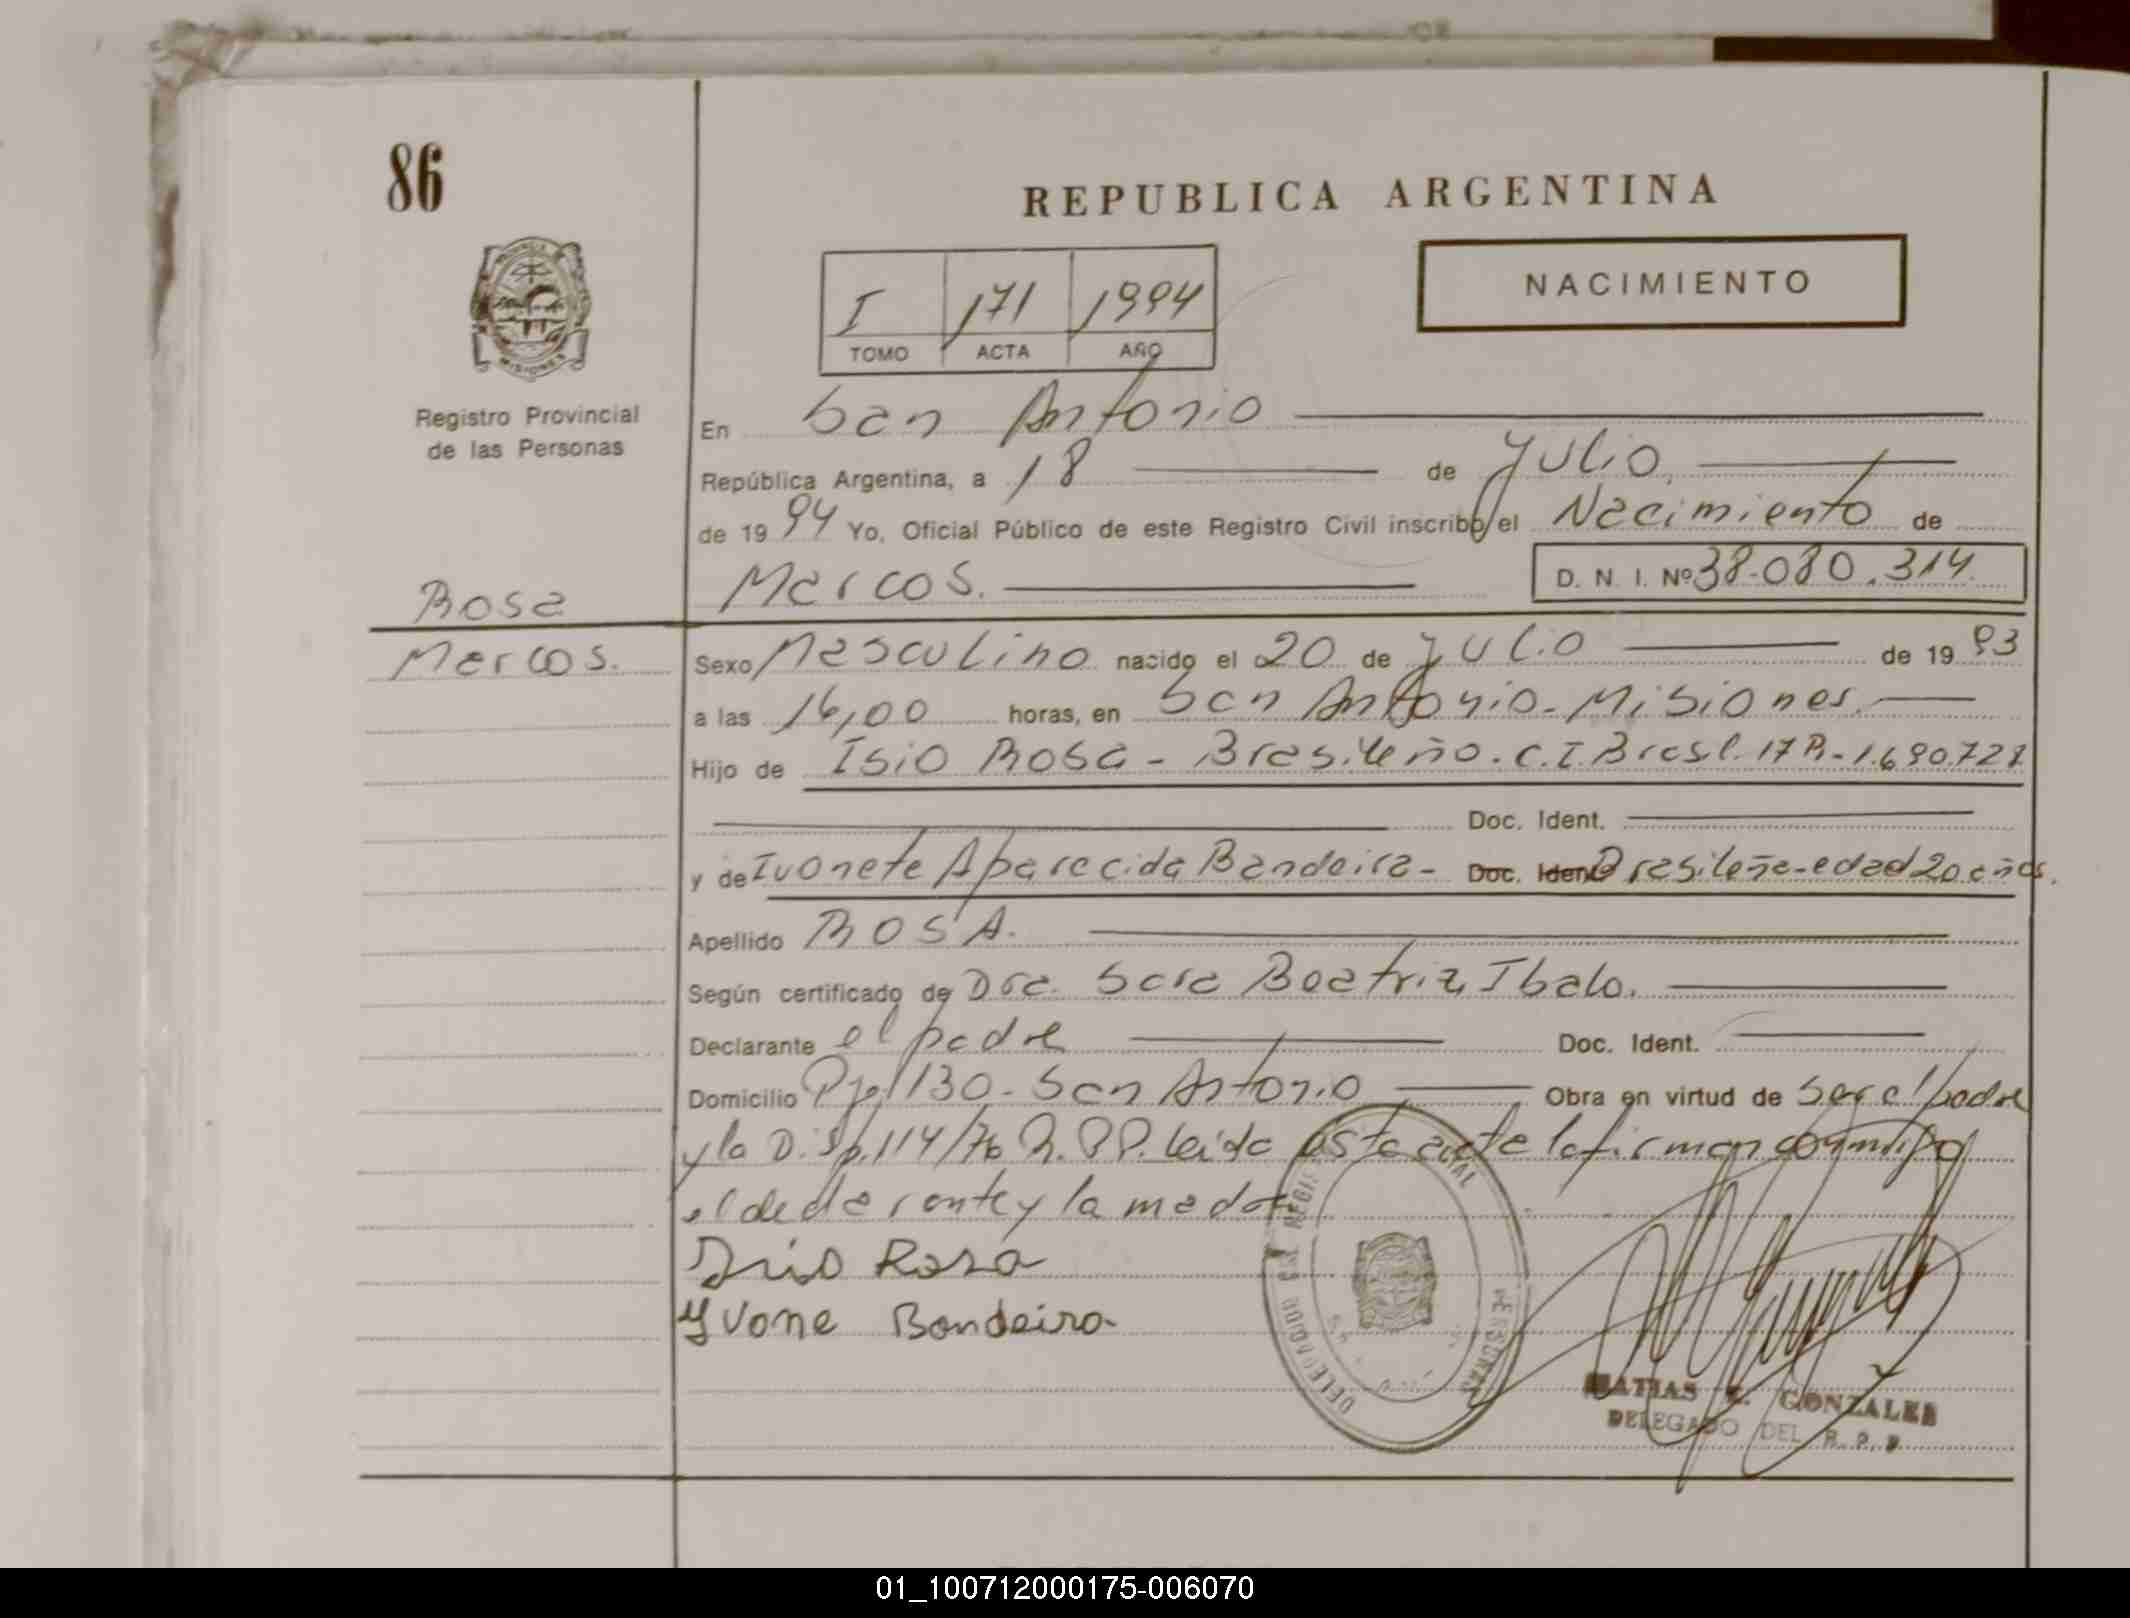 86
REPUBLICA ARGENTINA
NACIMIENTO
I 171 1994
TOMO ACTA AÑO
PROVINCIA
MISIONES
Registro Provincial
de las Personas
En San Antonio
República Argentina, a 18 de Julio
de 1994 Yo, Oficial Público de este Registro Civil inscribo el Nacimiento de
Marcos. D. N. I. Nº 38.080.314
Rosa
Marcos.
Sexo Masculino nacido el 20 de Julio de 1993
a las 16,00 horas, en San Antonio - Misiones.
Hijo de Isio Rosa - Brasileño. C.I. Brasl. 17R-1.690.728
Doc. Ident.
y de Ivonete Aparecida Bandeira - Doc. Ident. Brasileña - edad 20 años.
Apellido ROSA.
Según certificado de Dra. Sara Beatriz Ibalo.
Declarante el padre Doc. Ident.
Domicilio Pje 130 - San Antonio Obra en virtud de ser el padre
y la Disp. 114/76 R.P.P. leída esta acta la firman conmigo
el declarante y la madre
Isio Rosa
Yvone Bandeira
DEL REGISTRO PERSONAS
MATIAS GONZALES
DELEGADO DEL R. P. P.
01_100712000175-006070